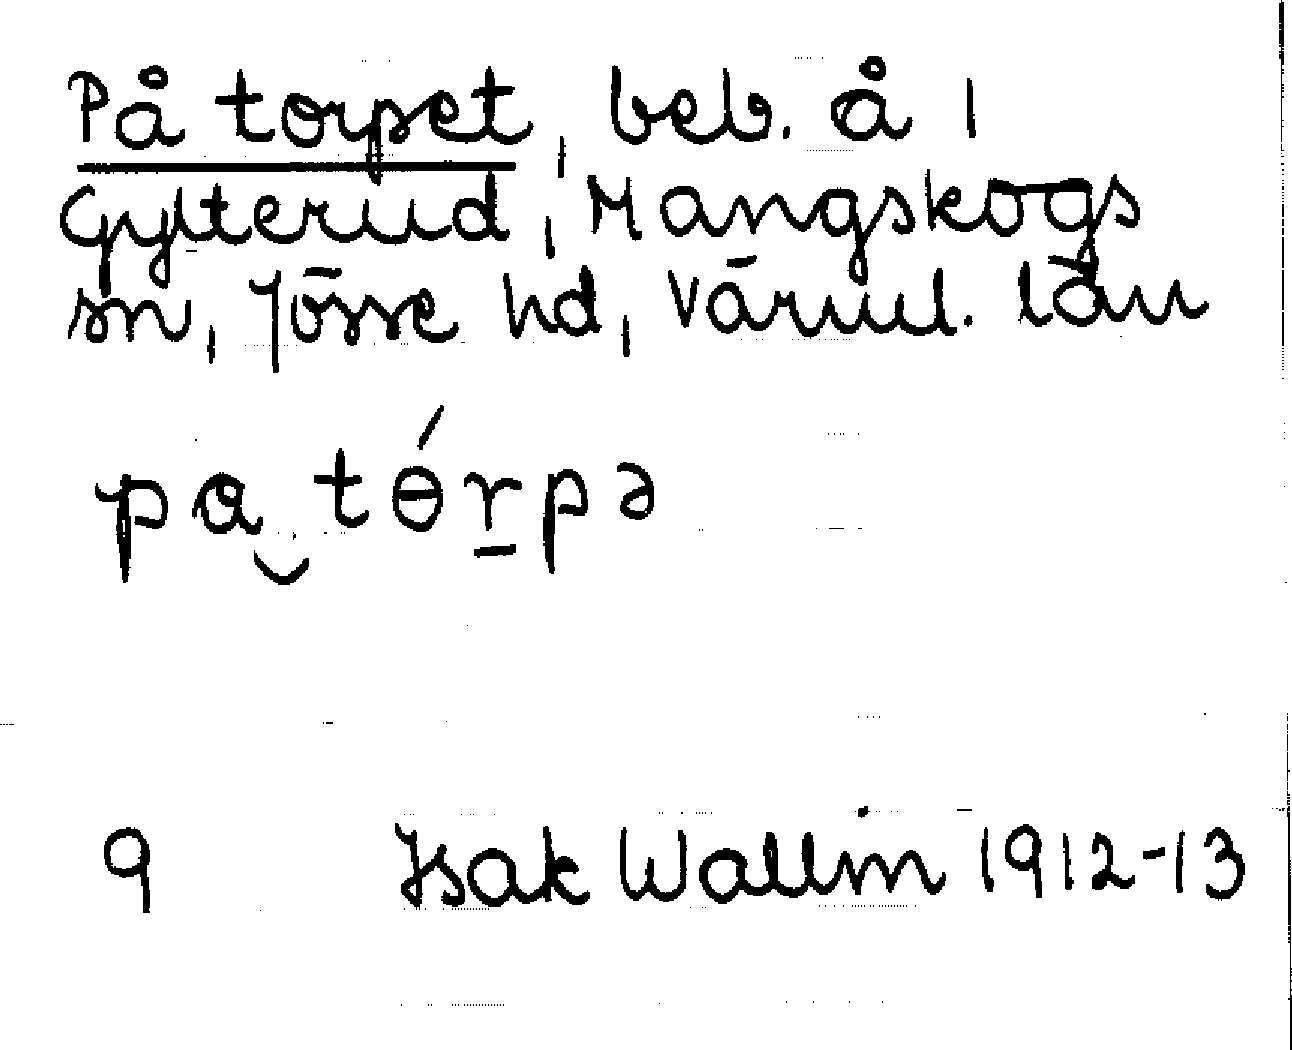 På torpet, beb. å 1
Gylterud, Mangskogs
sn, Jösse hd, Värml. län
pa‿tɵ́r̠pə
9 Isak Wallin 1912-13